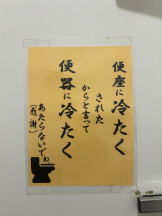 便座に冷たく
された
からと言って
便器に冷たく
あたらないでね
(感謝)